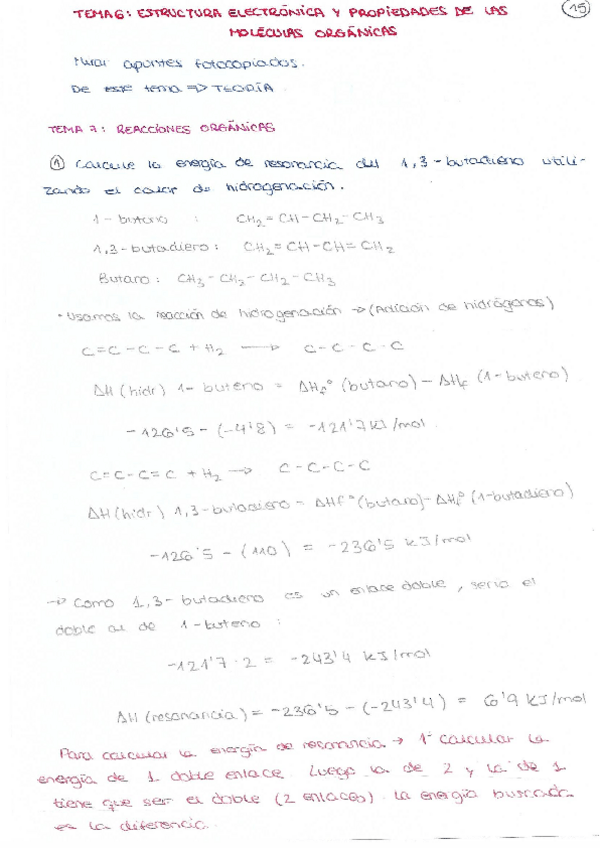 TEMA 6: ESTRUCTURA ELECTRÓNICA Y PROPIEDADES DE LAS
MOLÉCULAS ORGÁNICAS
15
Mirar apuntes fotocopiados.
De este tema => TEORÍA
TEMA 7: REACCIONES ORGÁNICAS
① Calcule la energía de resonancia del 1,3-butadieno utili-
zando el calor de hidrogenación.
1-buteno : CH₂=CH-CH₂-CH₃
1,3-butadieno: CH₂=CH-CH=CH₂
Butano: CH₃-CH₂-CH₂-CH₃
· Usamos la reacción de hidrogenación → (Adición de hidrógenos)
C=C-C-C + H₂ → C-C-C-C
ΔH (hidr) 1-buteno = ΔHf° (butano) - ΔHf (1-buteno)
-126'5 - (-4'8) = -121'7 KJ/mol.
C=C-C=C + H₂ → C-C-C-C
ΔH (hidr) 1,3-butadieno = ΔHf° (butano) - ΔHf° (1-butadieno)
-126'5 - (110) = -236'5 KJ/mol
→ Como 1,3-butadieno es un enlace doble, sería el
doble al de 1-buteno:
-121'7 · 2 = -243'4 KJ/mol
ΔH (resonancia) = -236'5 - (-243'4) = 6'9 KJ/mol
Para calcular la energía de resonancia → 1º calcular la
energía de 1 doble enlace. Luego la de 2 y la de 1
tiene que ser el doble (2 enlaces). La energía buscada
es la diferencia.